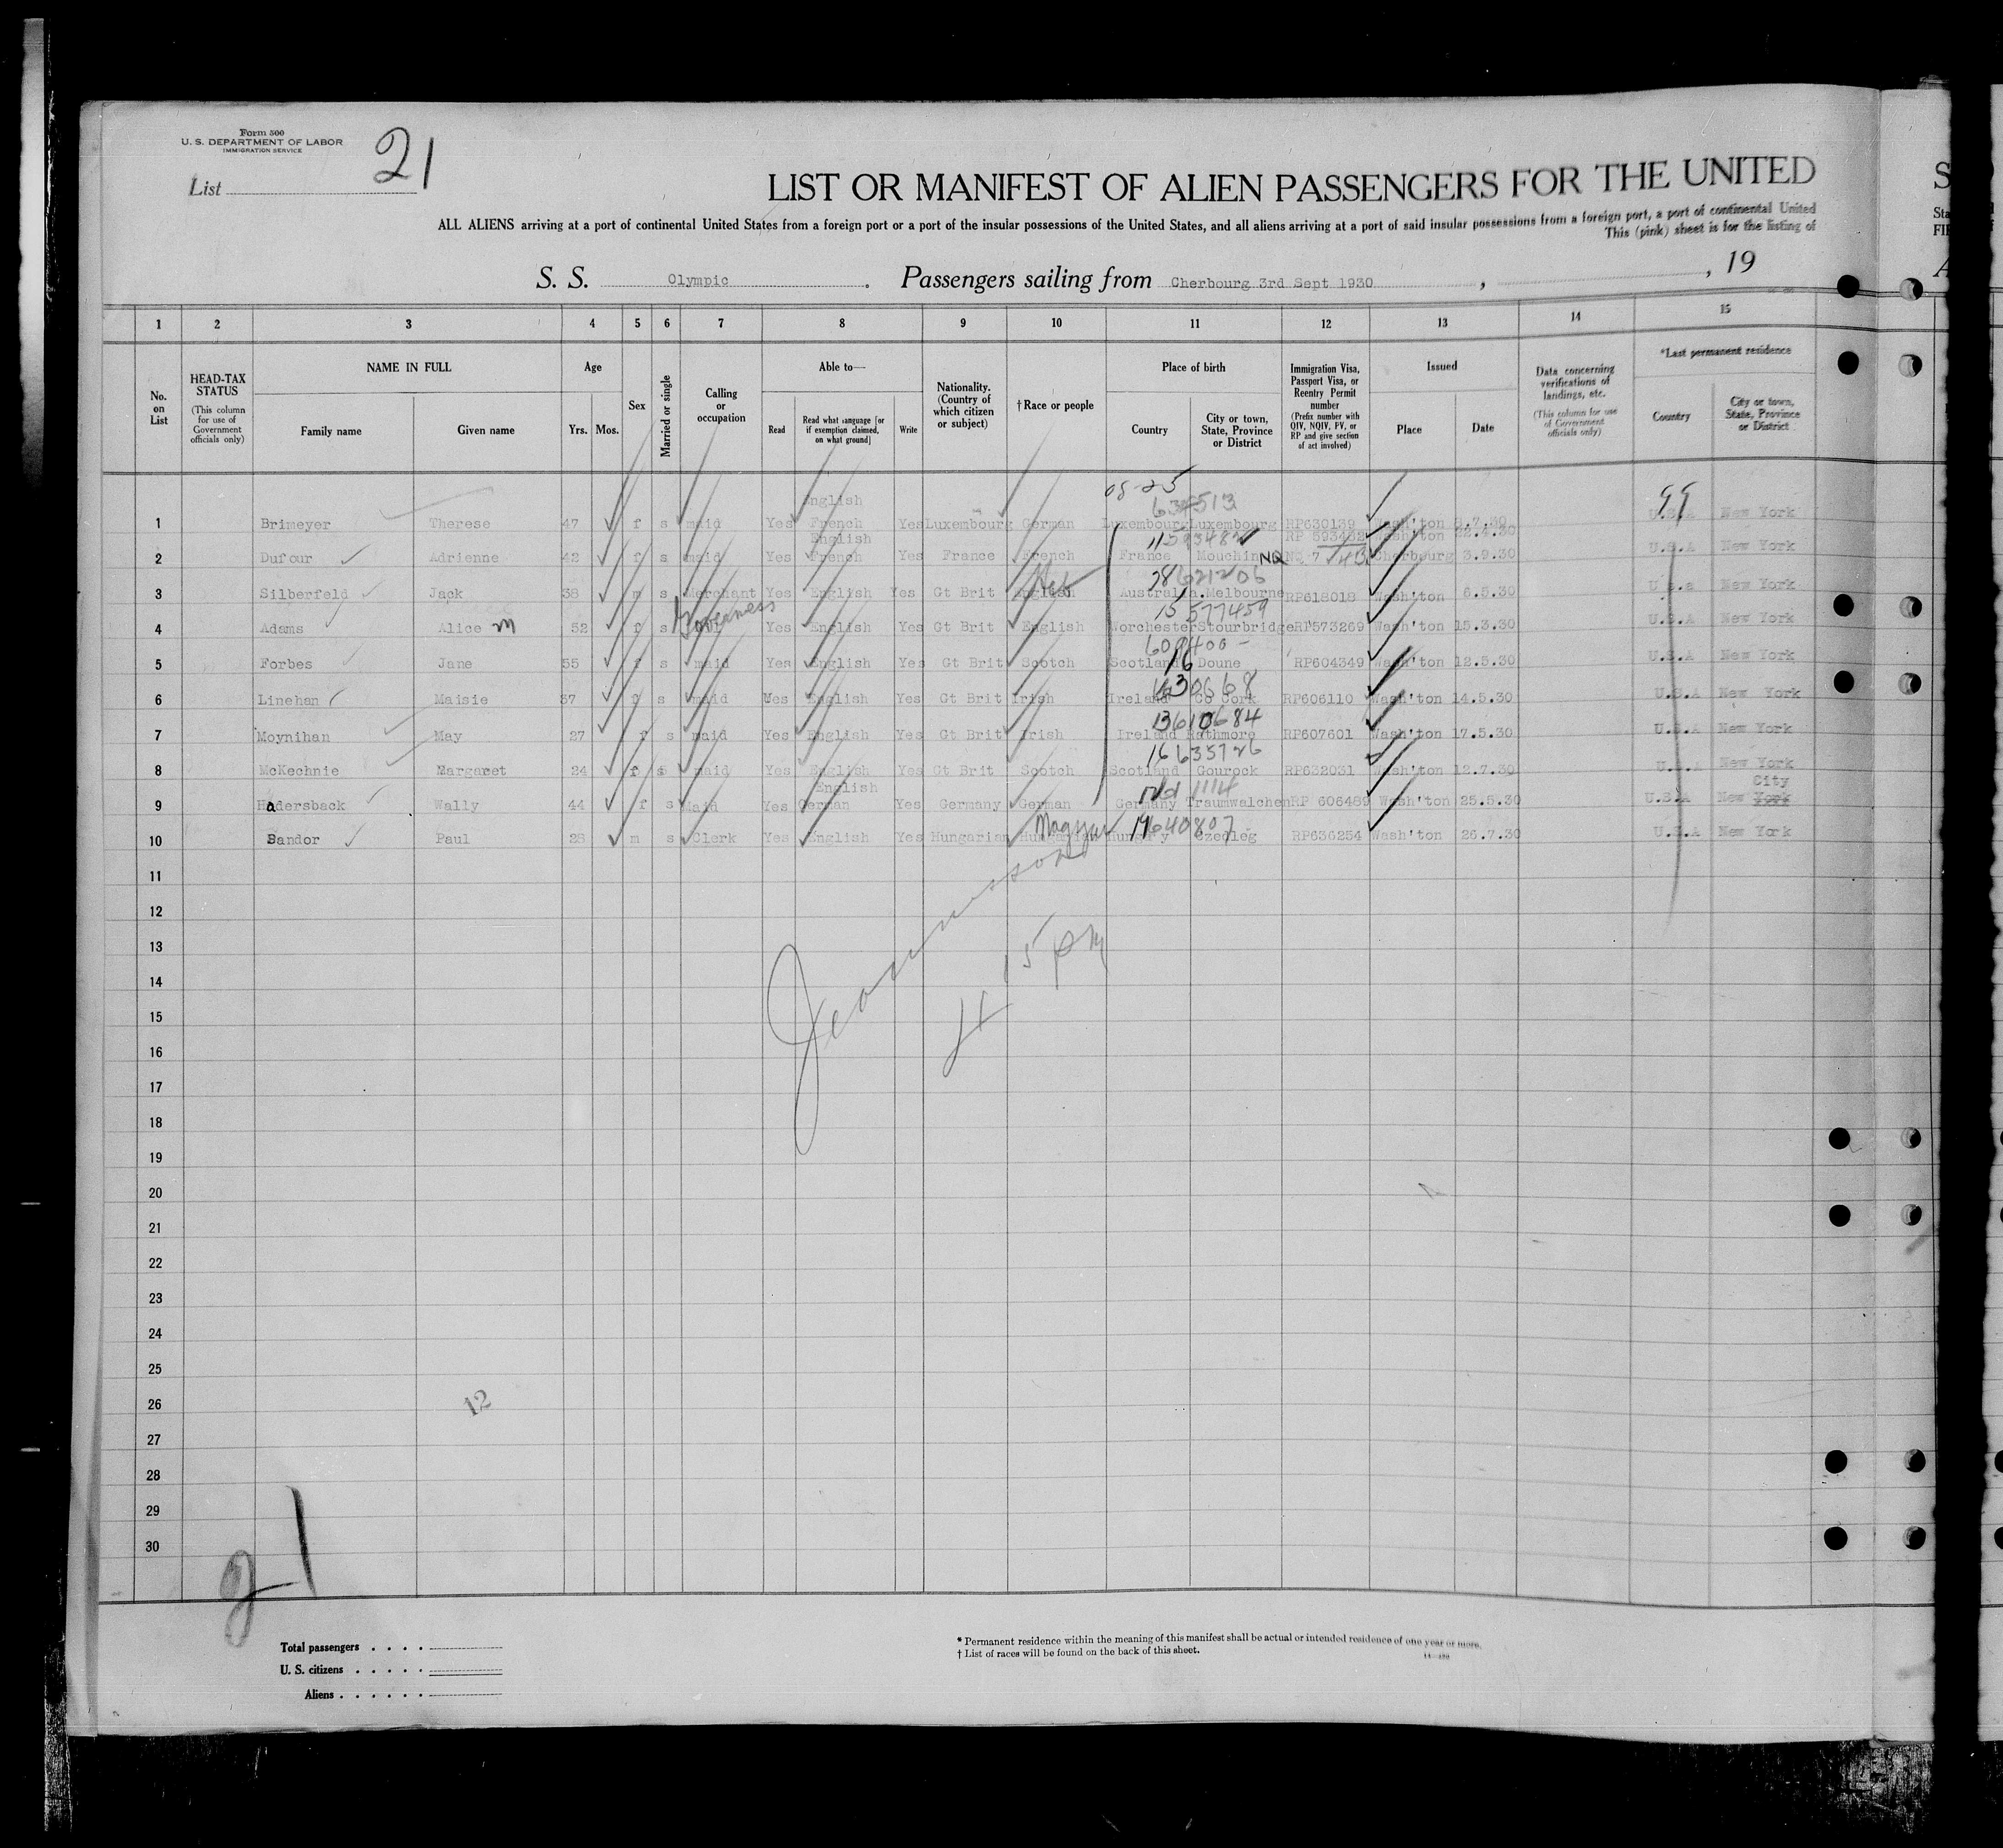 Form 500
U. S. DEPARTMENT OF LABOR
IMMIGRATION SERVICE
List 21
LIST OR MANIFEST OF ALIEN PASSENGERS FOR THE UNITED
ALL ALIENS arriving at a port of continental United States from a foreign port or a port of the insular possessions of the United States, and all aliens arriving at a port of said insular possessions from a foreign port, a port of continental United
This (pink) sheet is for the listing of
S. S. Olympic. Passengers sailing from Cherbourg 3rd Sept 1930, , 19
1 2 3 4 5 6 7 8 9 10 11 12 13 14 15
No. on List
HEAD-TAX STATUS (This column for use of Government officials only)
NAME IN FULL
Family name Given name
Age
Yrs. Mos.
Sex
Married or single
Calling or occupation
Able to—
Read Read what language [or if exemption claimed, on what ground] Write
Nationality. (Country of which citizen or subject)
†Race or people
Place of birth
Country City or town, State, Province or District
Immigration Visa, Passport Visa, or Reentry Permit number (Prefix number with QIV, NQIV, PV, or RP and give section of act involved)
Issued
Place Date
Data concerning verifications of landings, etc. (This column for use of Government officials only)
*Last permanent residence
Country City or town, State, Province or District
1 Brimeyer Therese 47 f s maid Yes English French Yes Luxembourg German Luxembourg Luxembourg RP630139 Wash'ton U.S.A New York
2 Dufour Adrienne 42 f s maid Yes English French Yes France French France Mouchin NQ RP 593482 Wash'ton 22.4.30 Cherbourg 3.9.30 U.S.A New York
3 Silberfeld Jack 38 m s Merchant Yes English Yes Gt Brit English Heb Australia Melbourne RP618018 Wash'ton 6.5.30 U.S.a New York
4 Adams Alice M 52 f s Governess Yes English Yes Gt Brit English Worchester Stourbridge RP573269 Wash'ton 15.3.30 U.S.A New York
5 Forbes Jane 55 f s maid Yes English Yes Gt Brit Scotch Scotland Doune RP604349 Wash'ton 12.5.30 U.S.A New York
6 Linehan Maisie 37 f s maid Yes English Yes Gt Brit Irish Ireland Co Cork RP606110 Wash'ton 14.5.30 U.S.A New York
7 Moynihan May 27 f s maid Yes English Yes Gt Brit Irish Ireland Rathmore RP607601 Wash'ton 17.5.30 U.S.A New York
8 McKechnie Margaret 24 f s maid Yes English Yes Gt Brit Scotch Scotland Gourock RP632031 Wash'ton 12.7.30 U.S.A New York
9 Hadersback Wally 44 f s Maid Yes English German Yes Germany German Germany Traumwalchen RP 606489 Wash'ton 25.5.30 U.S.A New York City
10 Sandor Paul 28 m s Clerk Yes English Yes Hungarian Hungarian Magyar Hungary Czedleg RP636254 Wash'ton 26.7.30 U.S.A New York
11
12
13
14
15
16
17
18
19
20
21
22
23
24
25
26
27
28
29
30
12
21
Total passengers . . . .
U. S. citizens . . . . .
Aliens . . . . . .
* Permanent residence within the meaning of this manifest shall be actual or intended residence of one year or more.
† List of races will be found on the back of this sheet.